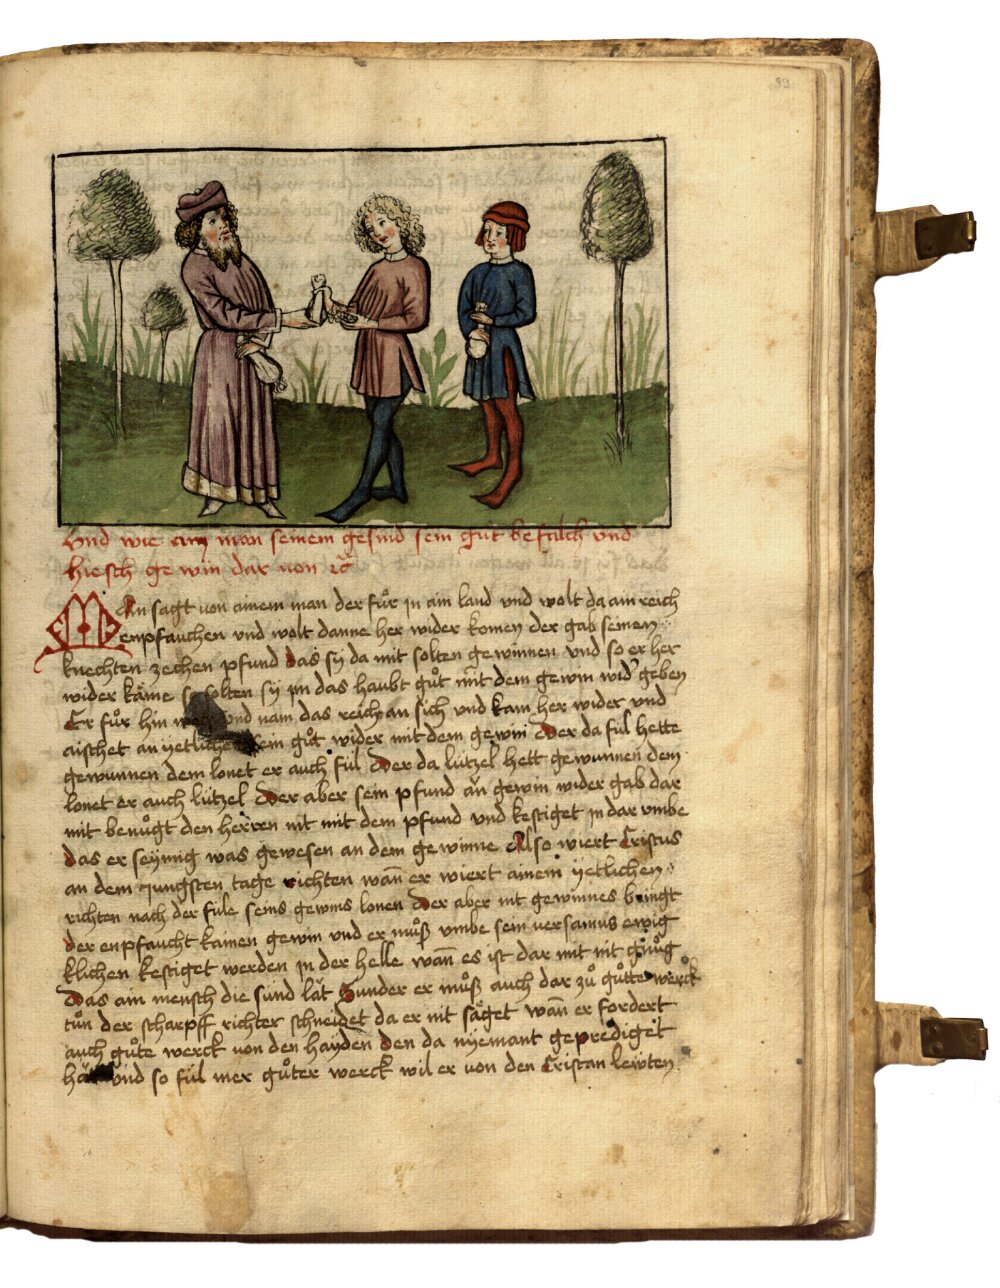 99
Vnd wie ain man seinem gesind sein gůt befalch vnd
hiesch gewin dar von ꝛc̃
MAn sagt von ainem man der fůr jn ain land vnd wolt da ain reich
enpfauchen vnd wolt danne her wider komen der gab seinen
knechten zechen pfund das sÿ da mit solten gewinnen vnd so er her
wider käme so solten sÿ jm das haubt gůt mit dem gewin wid͛ geben
Er fůr hin weg vnd nam das reich an sich vnd kam her wider vnd
aischet an ÿetlichem sein gůt wider mit dem gewin Der da ful hette
gewunnen dem lonet er auch ful Der da lützel hett gewunnen dem
lonet er auch lützel Der aber sein pfund an gewin wider gab dar
mit benůgt den herren nit mit dem pfund vnd kestiget jn dar vmbe
das er seÿnnig was gewesen an dem gewinne Also wiert Cristus
an dem jungsten tage richten wañ er wiert ainem ÿetlichen
richten nach der fule seins gewins lonen Der aber nit gewinnes bringt
der enpfaucht kainen gewin vnd er můß vmbe sein versamnus ewig
klichen kestiget werden jn der helle wañ es ist dar mit nit gnůg
Das ain mensch die sünd lät Sunder er můß auch dar zů gůtte werck
tůn der scharpff richter schneidet da er nit säget wañ er fordert
auch gůte werck von den haÿden den da nÿemant geprediget
hät vnd so fül mer gůter werck wil er von den Cristan lewten